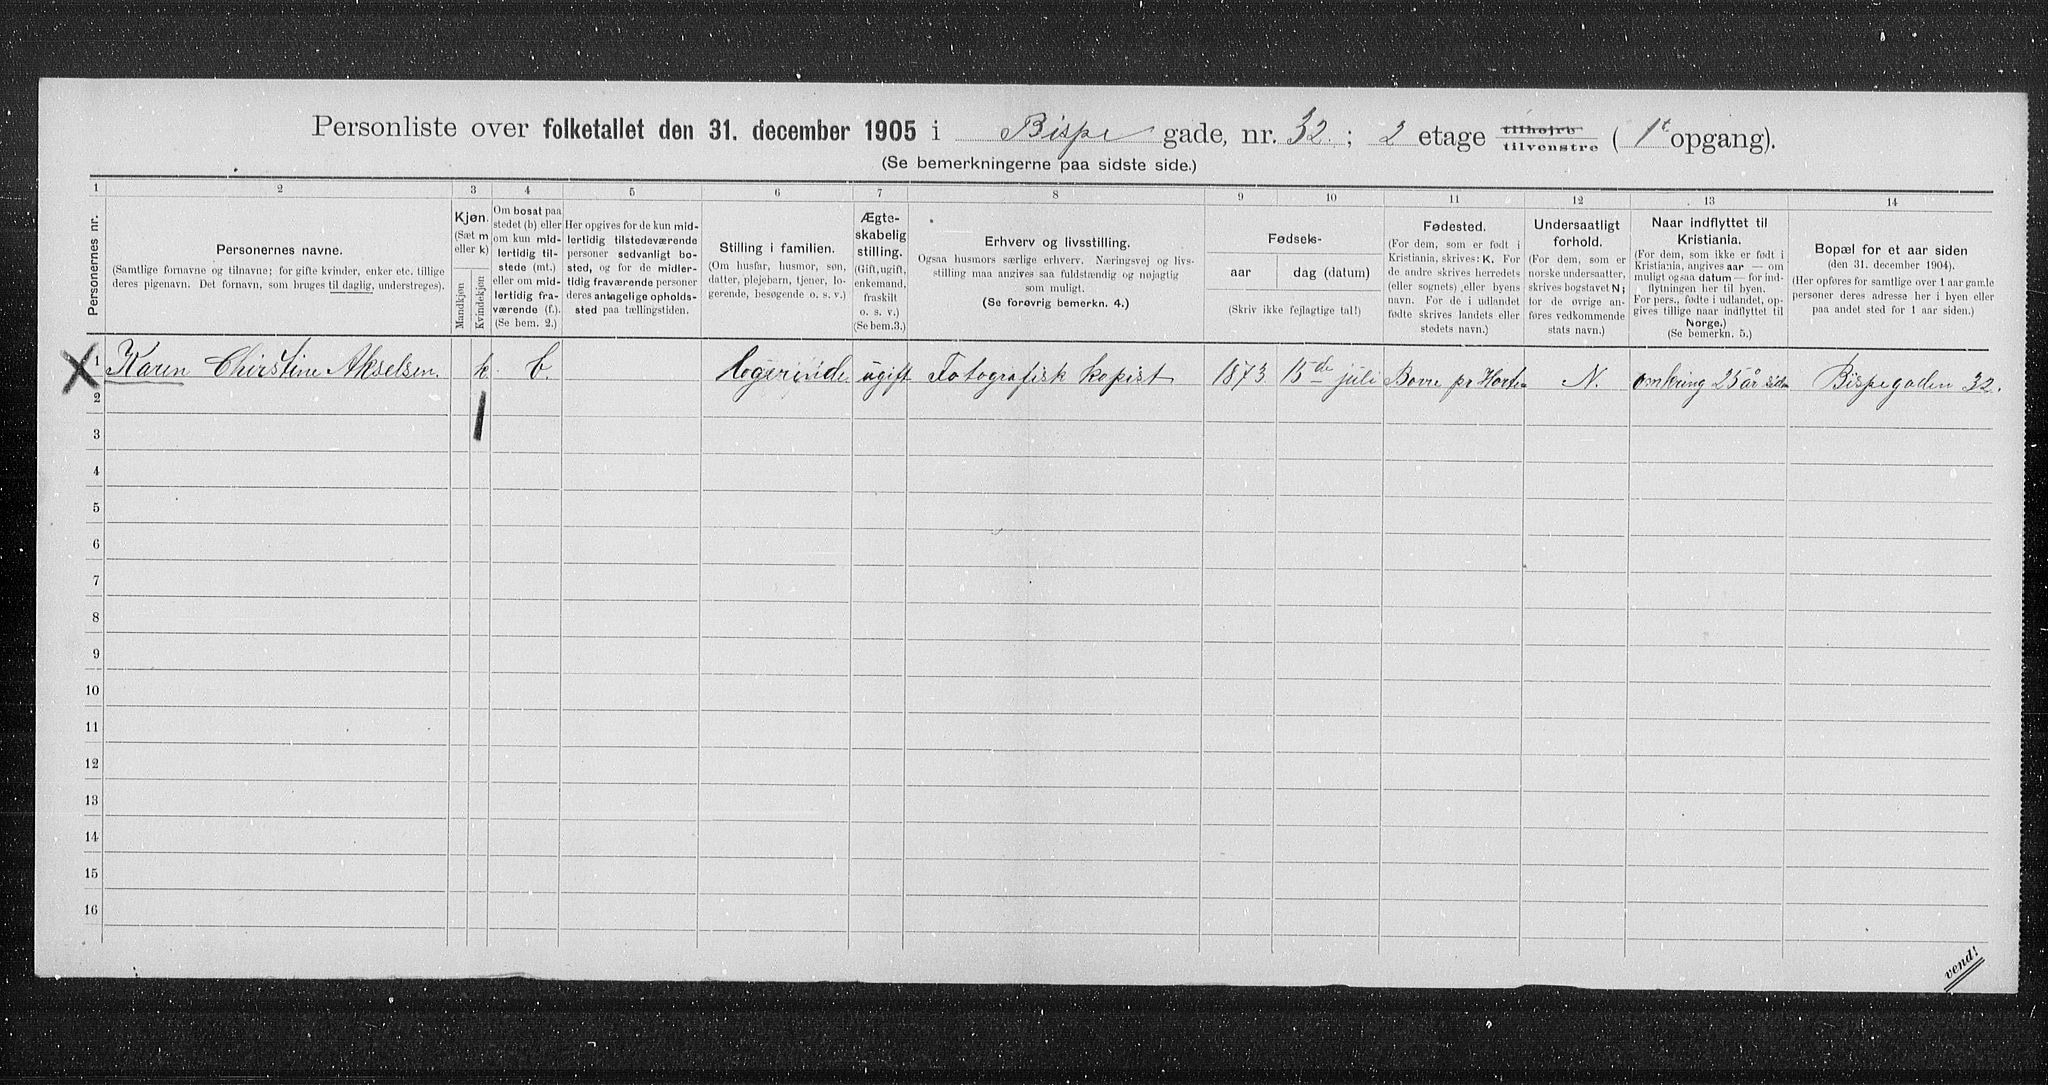 Personliste over folketallet den 31. december 1905 i Bispe gade, nr. 32 ; 2 etage tilhøjre tilvenstre ( 1ᵗ opgang).
(Se bemerkningerne paa sidste side.)
1 2 3 4 5 6 7 8 9 10 11 12 13 14
Personernes nr.
Personernes navne.
(Samtlige fornavne og tilnavne; for gifte kvinder, enker etc. tillige
deres pigenavn. Det fornavn, som bruges til daglig, understreges).
Kjøn.
(Sæt m
eller k)
Mandkjøn
Kvindekjøn
Om bosat paa
stedet (b) eller
om kun mid-
lertidig til-
stede (mt.)
eller om mid-
lertidig fra-
værende (f.).
(Se bem. 2.)
Her opgives for de kun mid-
lertidig tilstedeværende
personer sedvanligt bo-
sted, og for de midler-
tidig fraværende personer
deres antagelige opholds-
sted paa tællingstiden.
Stilling i familien.
(Om husfar, husmor, søn,
datter, plejebarn, tjener, lo-
gerende, besøgende o. s. v.)
Ægte-
skabelig
stilling.
(Gift, ugift,
enkemand,
fraskilt
o. s. v.)
(Se bem.3.)
Erhverv og livsstilling.
Ogsaa husmors særlige erhverv. Næringsvej og livs-
stilling maa angives saa fuldstændig og nøjagtig
som muligt.
(Se forøvrig bemerkn. 4.)
Fødsels-
aar dag (datum)
(Skriv ikke fejlagtige tal!)
Fødested.
(For dem, som er født i
Kristiania, skrives: K. For
de andre skrives herredets
(eller sognets) ,eller byens
navn. For de i udlandet
fødte skrives landets eller
stedets navn.)
Undersaatligt
forhold.
(For dem, som er
norske undersaatter,
skrives bogstavet N;
for de øvrige an-
føres vedkommende
stats navn.)
Naar indflyttet til
Kristiania.
(For dem, som ikke er født i
Kristiania, angives aar — om
muligt ogsaa datum — for ind-
flytningen her til byen.
For pers., fødte i udlandet, op-
gives tillige naar indflyttet til
Norge.)
(Se bemerkn. 5.)
Bopæl for et aar siden
(den 31. december 1904).
(Her opføres for samtlige over 1 aar gamle
personer deres adresse her i byen eller
paa andet sted for 1 aar siden.)
1 Karen Chirstine Akselsen. k. b. logerende. ugift Fotografisk kopist 1873 15de juli Borre pr Horten N. omkring 25 år siden Bispegaden 32.
2
3
4
5
6
7
8
9
10
11
12
13
14
15
16
vend!